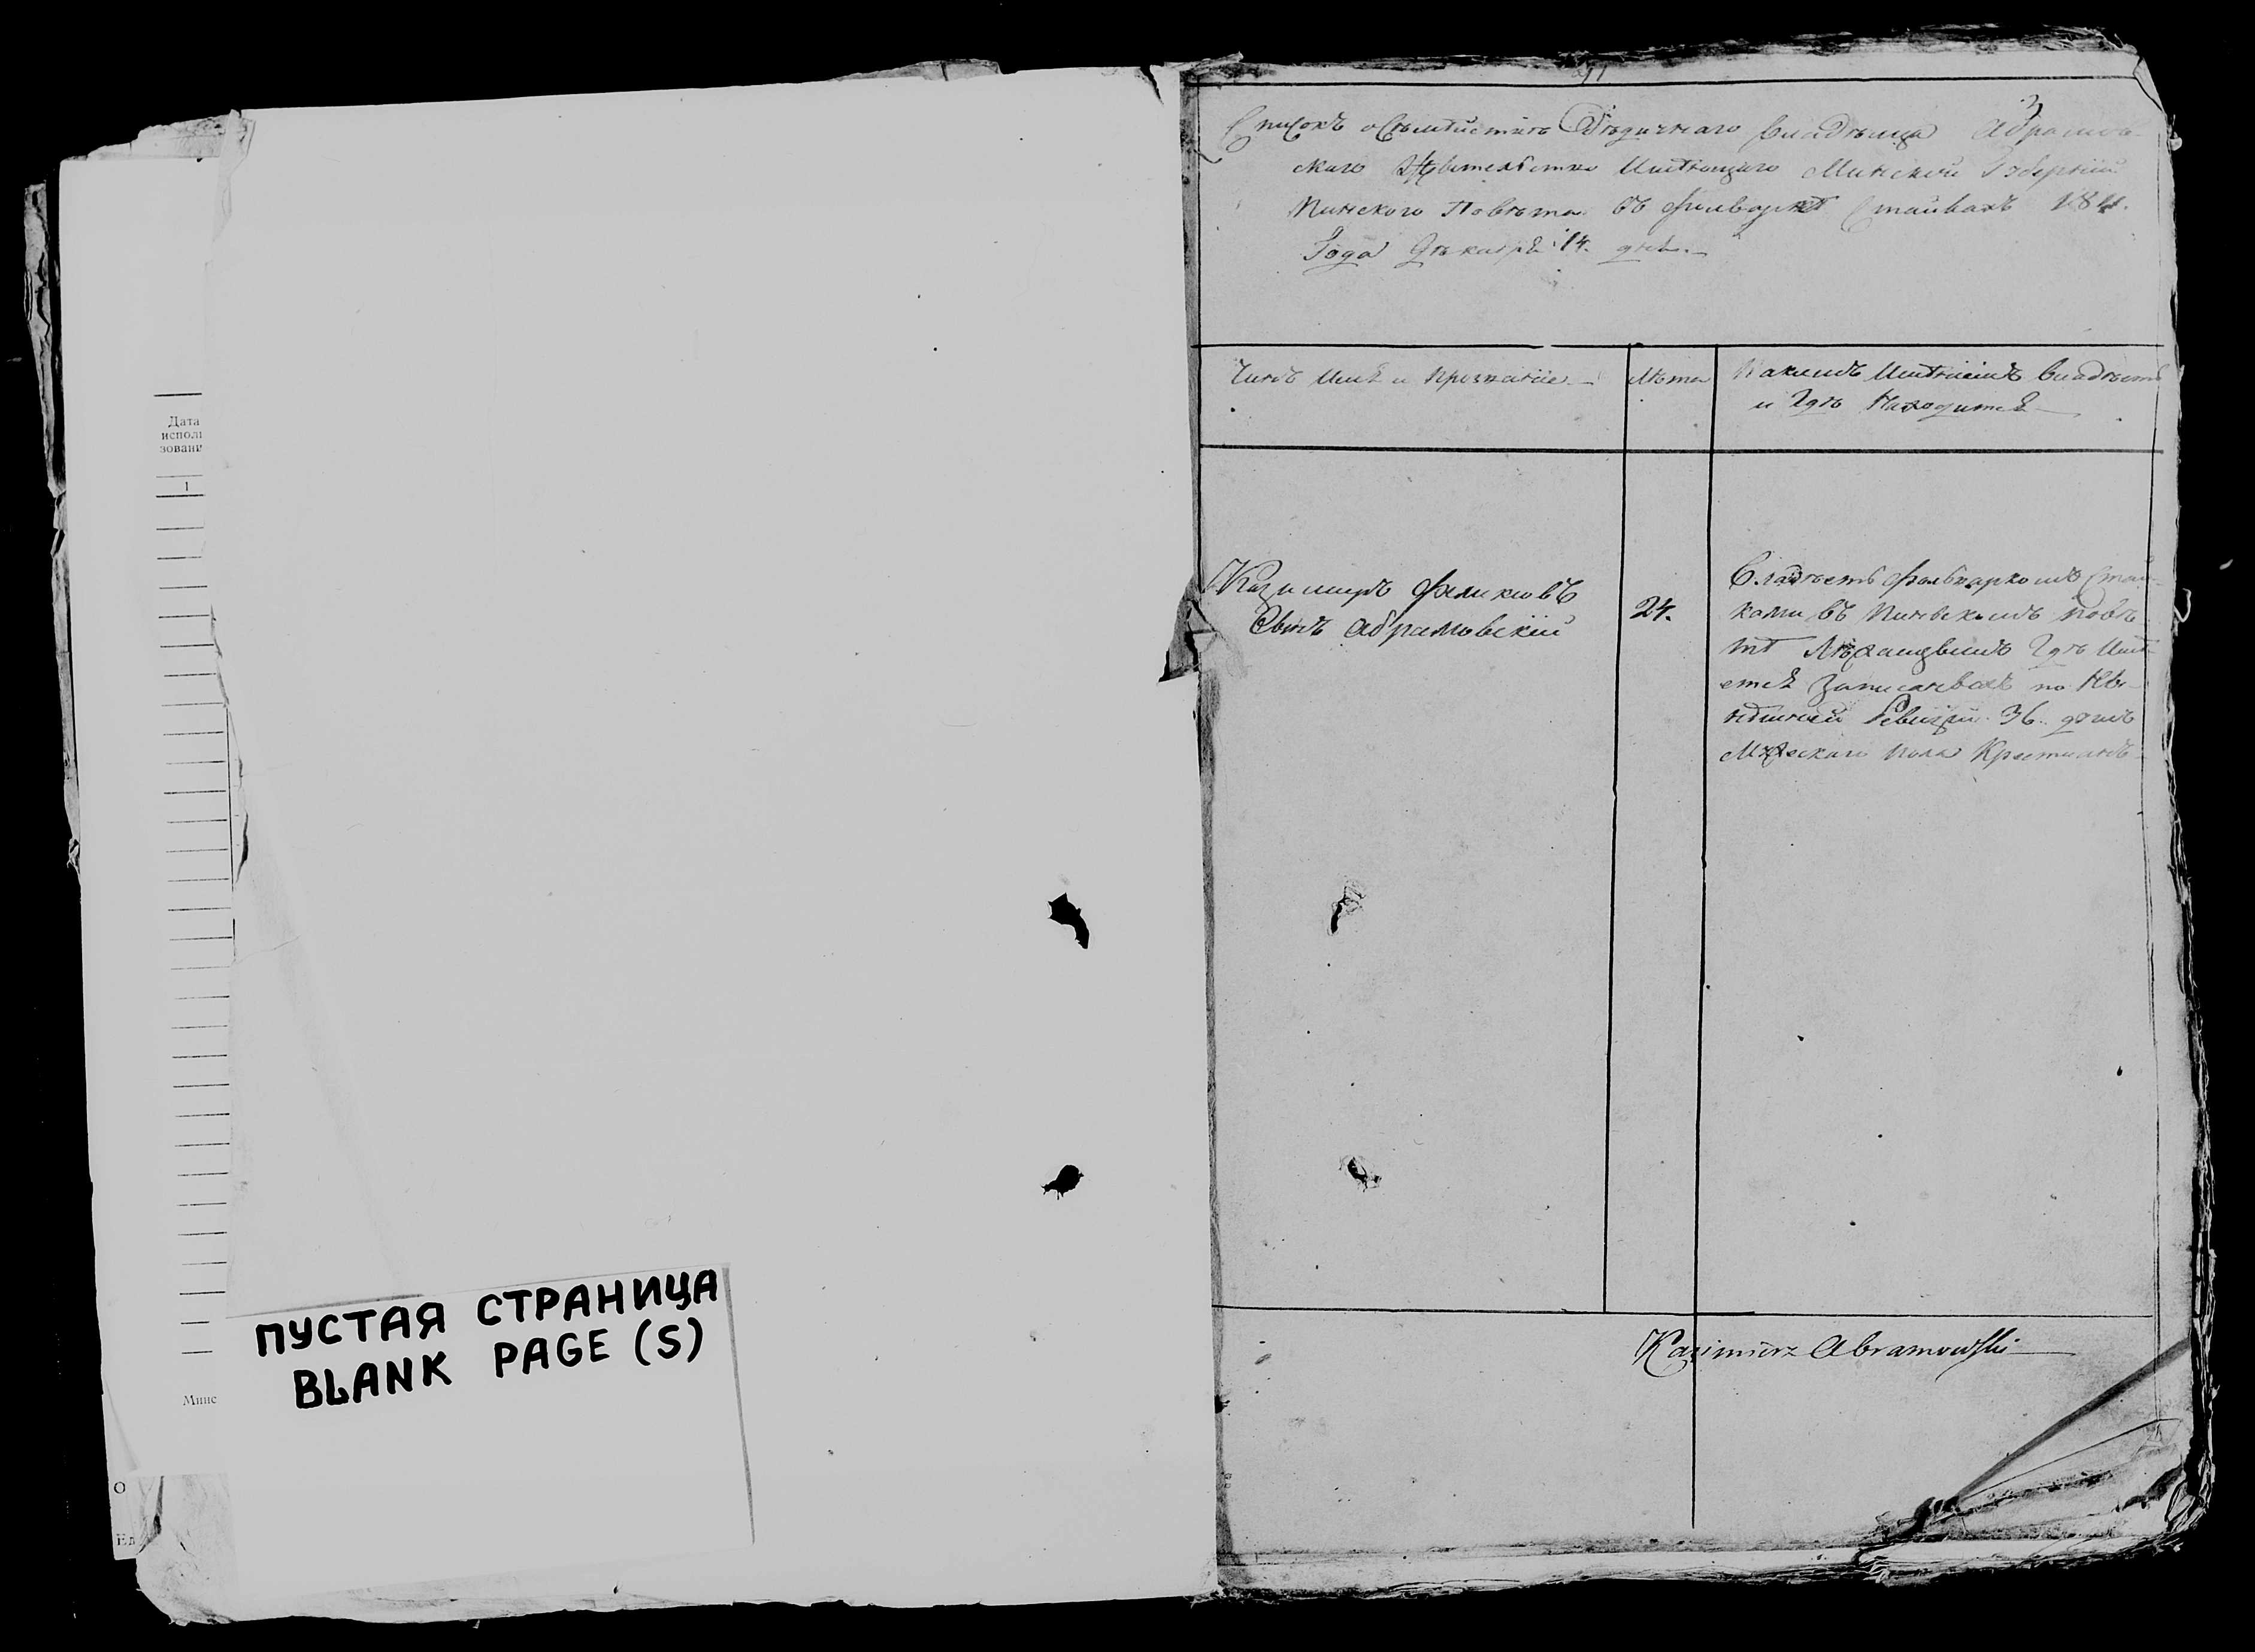 Дата
исполь
зовани
1
Минс
О
ПУСТАЯ СТРАНИЦА
BLANK PAGE (S)
3
Списокъ о Фамиліи Абрамов-
скаго Жительство Имѣющаго Минской Губерніи
Пинского Повѣта въ Фольваркѣ Стайкахъ 1811.
Года Декабря 14. дня.
Чинъ Имя и Прозваніе
Лѣта
Какимъ Имѣніемъ владѣетъ
и Гдѣ Находится
Казимиръ Феликсовъ
Сынъ Абрамовскій
24.
Владѣетъ фольваркомъ Стай-
ками въ Пинскомъ повѣ
тѣ Гдѣ Имѣ-
ется Записанныхъ по Ны-
нѣшней Ревизіи 36. душъ
Мужескаго пола Крестьянъ
Kazimierz Abramowski